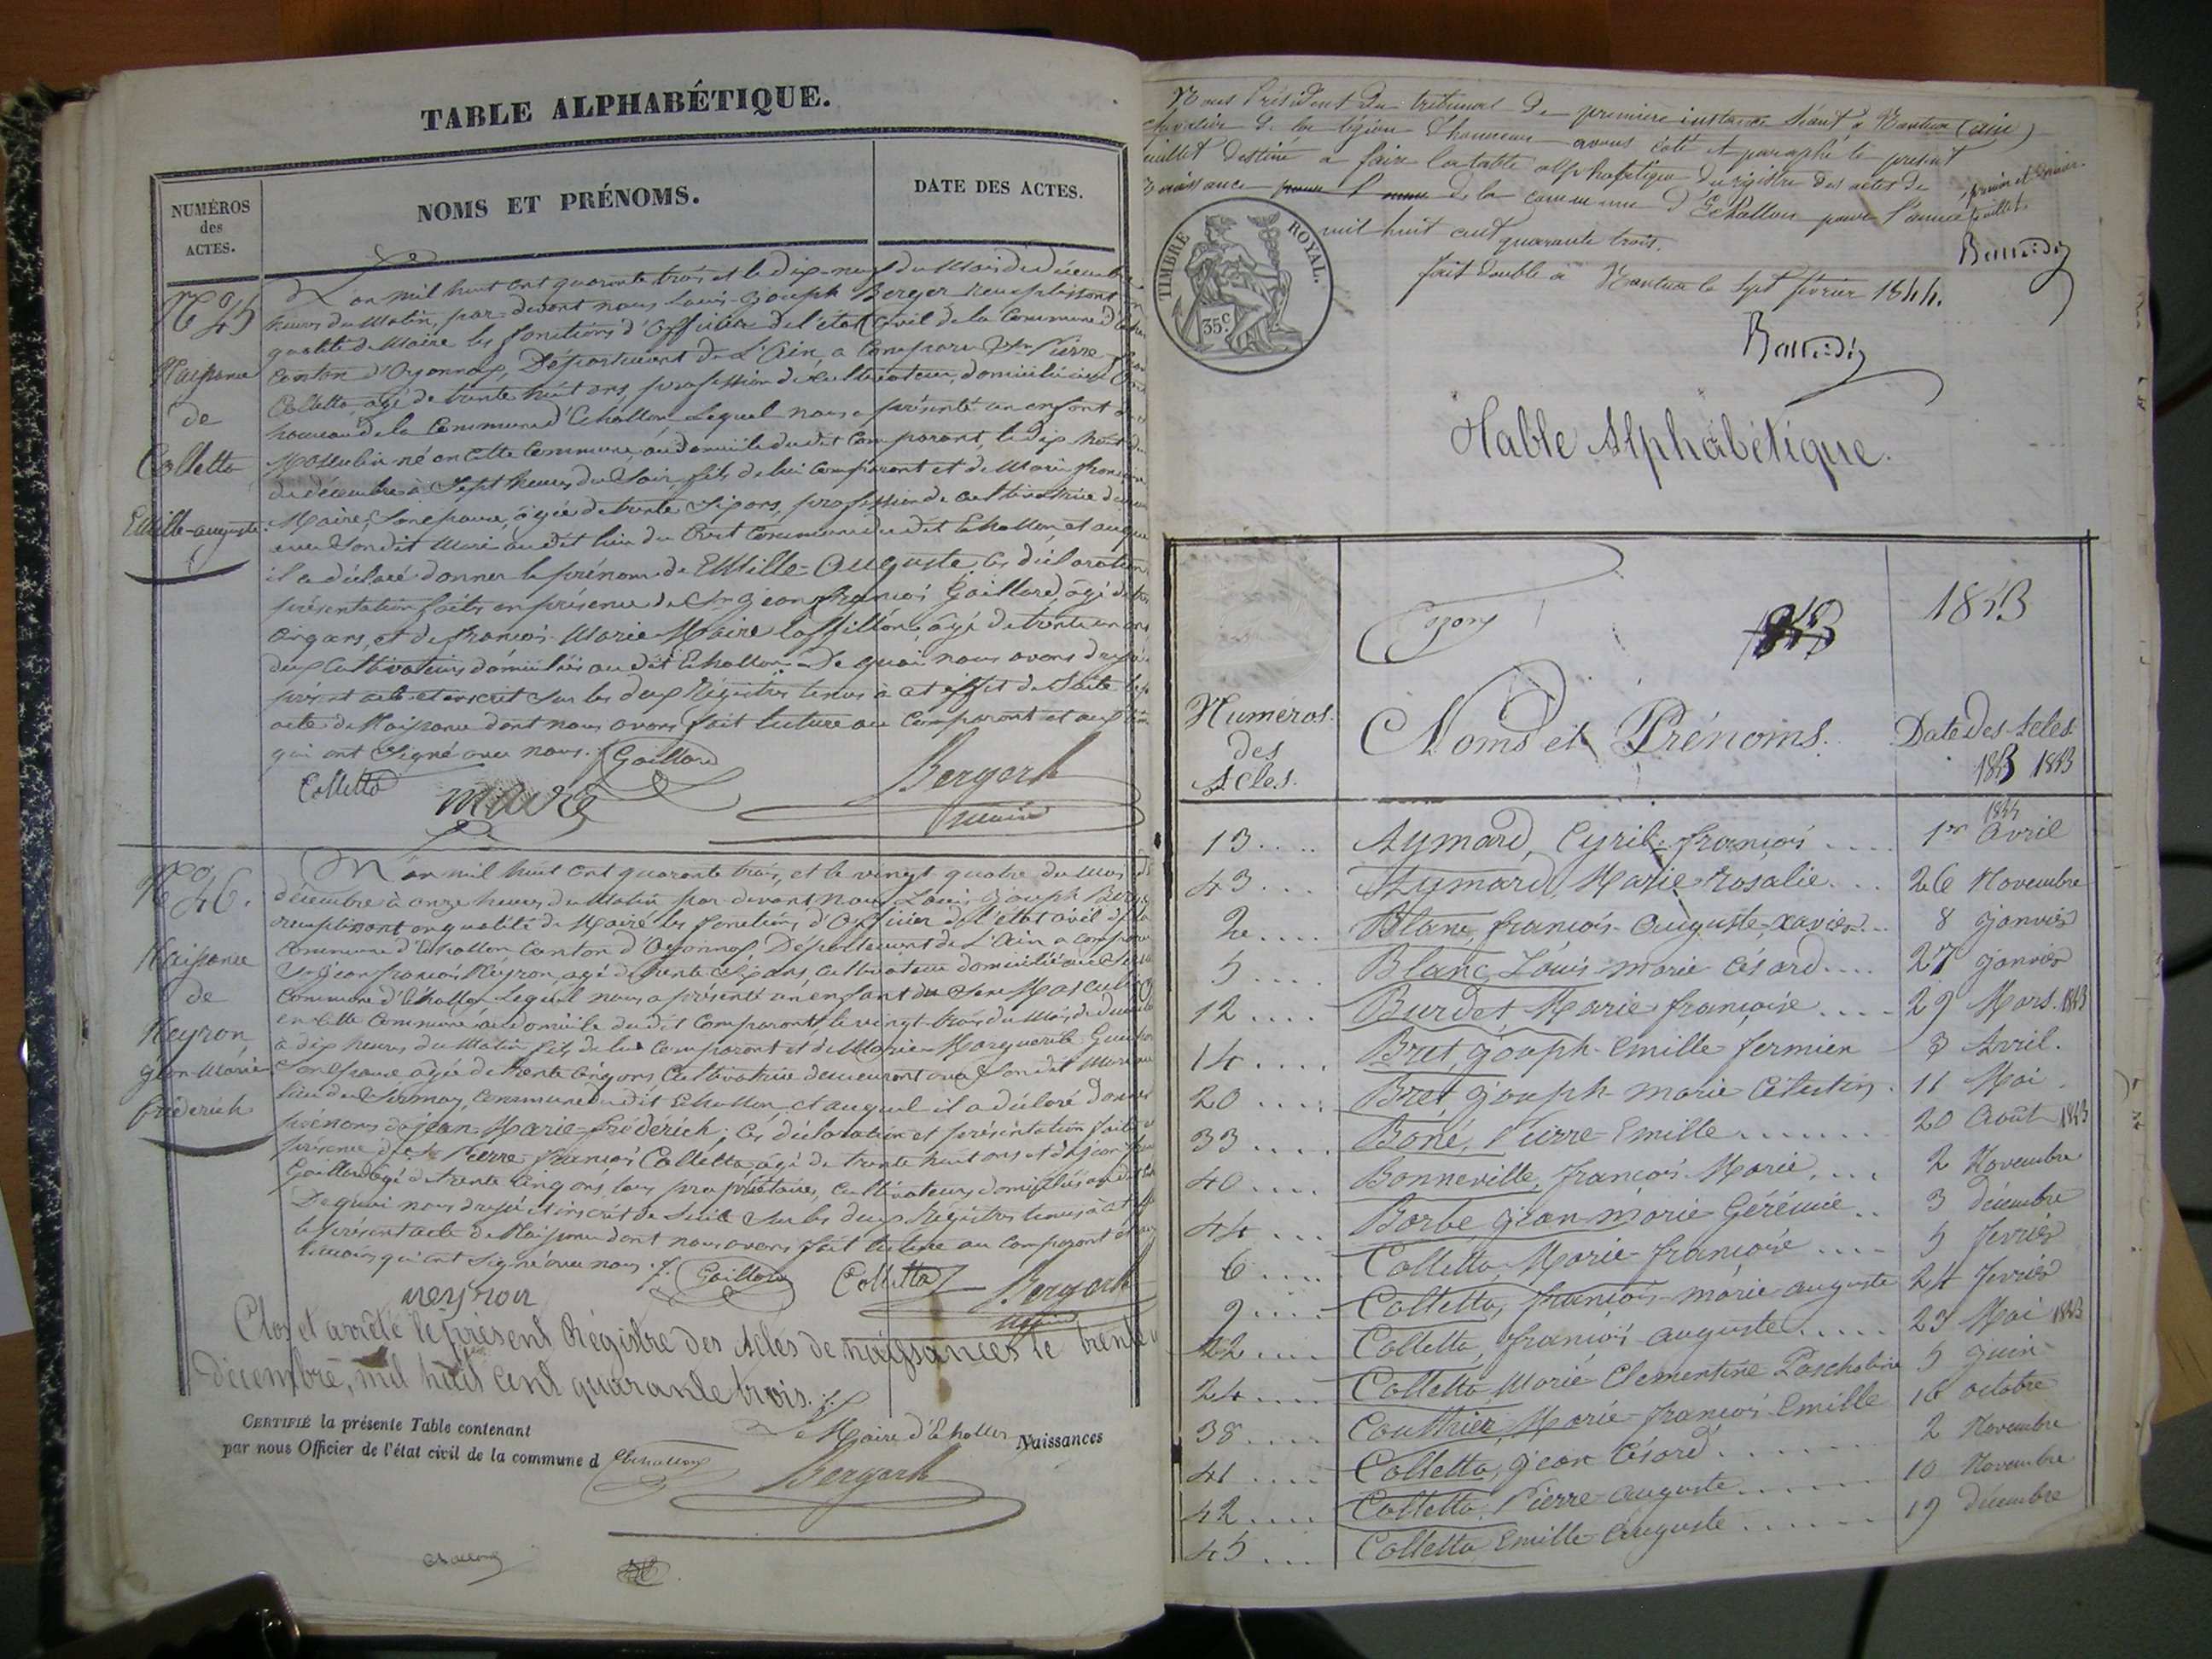 TABLE ALPHABÉTIQUE.
NUMÉROS
des
ACTES.
NOMS ET PRÉNOMS.
DATE DES ACTES.
N° 45
Naissance
de
Colletta
Emille-auguste.
L'an mil huit cent quarante trois et le dix-neuf du Mois de décembre
heures du Matin, par-devant nous Louis-Joseph Berger remplissant
qualité de Maire les fonctions d'Officier de l'état Civil de la Commune d'
Canton d'Oyonnax, Département de L'Ain, a Comparu Sr Pierre
Colletta, agé de trente huit ans, profession de cultivateur, domicilié au
hameau de la Commune d'Echallon, Lequel nous a présenté un enfant
Masculin né en Cette Commune, au domicile du dit Comparant, le dix huit du
de décembre à Sept heures du Soir, fils de lui Comparant et de Marie françoise
Maire, Son épouse, âgée de trente Six ans, profession de cultivatrice
avec Son dit Mari au dit lieu du Cret Commune du dit Echallon, et auquel
il a déclaré donner le prénom de Emille-Auguste. Ces déclaration
présentation faites en présence de Sr Jean françois Gaillard, âgé de trente
Cinq ans, et de françois-Marie Maire âgé de trente un ans
deux Cultivateurs domiciliés au dit Echallon. De quoi nous avons dressé
présent acte et inscrit Sur les deux Régistres tenus à cet effet de Suite le
acte de Naissance dont nous avons fait lecture au Comparant et aux
qui ont Signé avec nous. Gaillard
Colletta maire Bergerh
maire
N° 46.
Naissance
de
Neyron,
jean-Marie
fréderich
L'an mil huit cent quarante trois, et le vingt quatre du Mois de
décembre à onze heures du Matin par-devant nous Louis-Joseph Berger
remplissant en qualité de Maire les fonctions d'Officier de l'état civil de la
Commune d'Echallon, Canton d'Oyonnax, Département de L'Ain a Comparu
Sr Jean françois Neyron, agé de trente ans, Cultivateur domicilié au
Commune d'Echallon Lequel nous a présenté un enfant du Sexe Masculin
en Cette Commune, au domicile du dit Comparant, le vingt-trois du Mois de décembre
à dix heures du Matin fils de lui Comparant et de Marie Marguerite
Son épouse agée de trente Cinq ans, Cultivatrice demeurant avec Son dit Mari au
lieu du Sirmon, Commune du dit Echallon, et auquel il a déclaré donner
prénoms de jean-Marie-fréderich; Ces déclaration et présentation faites
présence de Sr Pierre françois Colletta, âgé de trente huit ans et de jean
Gaillard agé de trente Cinq ans, tous propriétaires, Cultivateurs domiciliés au dit
De quoi nous dressé et inscrit de Suite Sur les deux Régistres tenus à cet
le présent acte de Naissance dont nous avons fait lecture au Comparant et aux
témoins qui ont signé avec nous. Gaillard Colletta Bergerh
neyron
Clos et arrêté le présent Régistre des Actes de naissances le trente
décembre, mil huit cent quarante trois.
CERTIFIÉ la présente Table contenant
Naissances
par nous Officier de l'état civil de la commune d Echallon
Le Maire d'Echallon
Bergerh
Nous Président du tribunal de première instance séant à Nantua (ain)
chevalier de la légion d'honneur avons coté et paraphé le présent
feuillet destiné a faire la table alphabétique du régistre des actes de
Naissance de la commune d'Echallon pour l'année
mil huit cent quarante trois.
fait double à Nantua le sept février 1844.
TIMBRE ROYAL.
35c
Table Alphabétique.
1843
Numéros
des
Actes.
Noms et Prénoms.
Date des Actes
1843 1843
13.... Aymard, Cyrile françois.... 1er Avril
43.... Aymard, Marie-Rosalie... 26 Novembre
2.... Blanc, françois-Auguste-xavier... 8 Janvier
5.... Blanc, Louis marie César.... 27 Janvier
12.... Burdet, Marie-françoise.... 29 Mars. 1843
14.... Bret, Joseph-Emille fermier 3 Avril.
20.... Bret, Joseph-marie Célestin. 11 Mai
33.... Boné, Pierre-Emille...... 20 Août 1843
40.... Bonneville, françois-Marie... 2 Novembre
44... Barbe, jean-marie Gérémie.. 3 décembre
6.... Colletta Marie-françoise.... 5 Fevrier
9.... Colletta, françois-marie auguste 24 Fevrier
22.... Colletta, françois auguste.... 29 Mai 1843
24.... Colletta Marie-Clementine Paschaline 5 Juin
38.... Couthier, Marie-françois-Emille 16 octobre
41.... Colletta, jean César...... 2 Novembre
42.... Colletta, Pierre-auguste..... 10 Novembre
45.... Colletta Emille Auguste..... 19 décembre